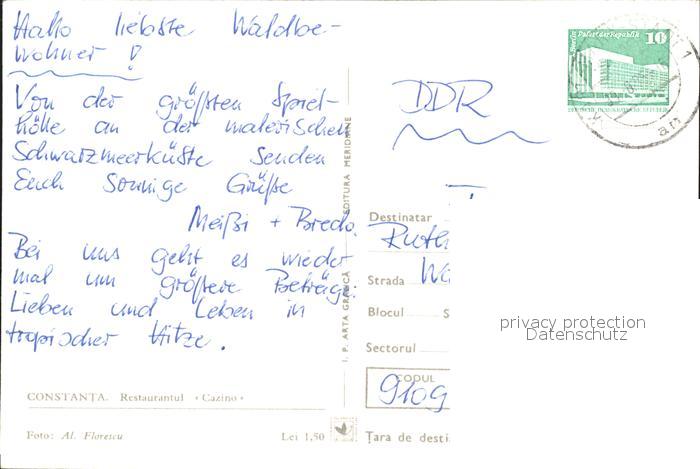 Hallo liebste Waldbe-
wohner !
Von der größten Spiel-
hölle an der malerischen
Schwarzmeerküste senden
Euch sonnige Grüße
Meißi + Bredo.
Bei uns geht es wieder
mal um größere Beträge.
Lieben und Leben in
tropischer Hitze.
CONSTANȚA. Restaurantul «Cazino»
Foto: Al. Florescu Lei 1,50
I. P. ARTA GRAFICĂ EDITURA MERIDIANE
Berlin Palast der Republik 10
DEUTSCHE DEMOKRATISCHE REPUBLIK
an
DDR
Destinatar
Ruth
Strada
Blocul S
Sectorul
CODUL
9109
Țara de desti
privacy protection
Datenschutz